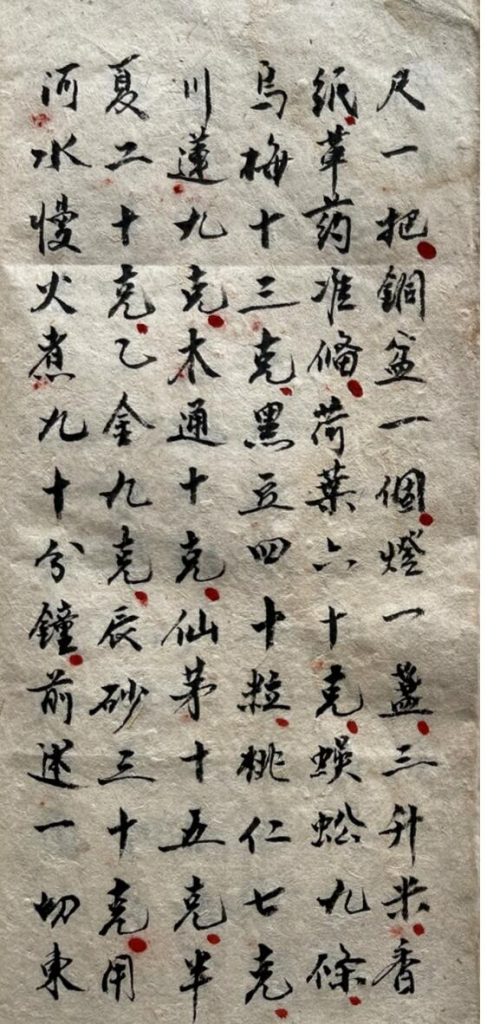 尺一把銅盆一個燈一盞三升米香
紙草药准備荷葉六十克蜈蚣九條
烏梅十三克黑豆四十粒桃仁七克
川蓮九克木通十克仙茅十五克半
夏二十克乙金九克辰砂三十克用
河水慢火煮九十分鐘前述一切東